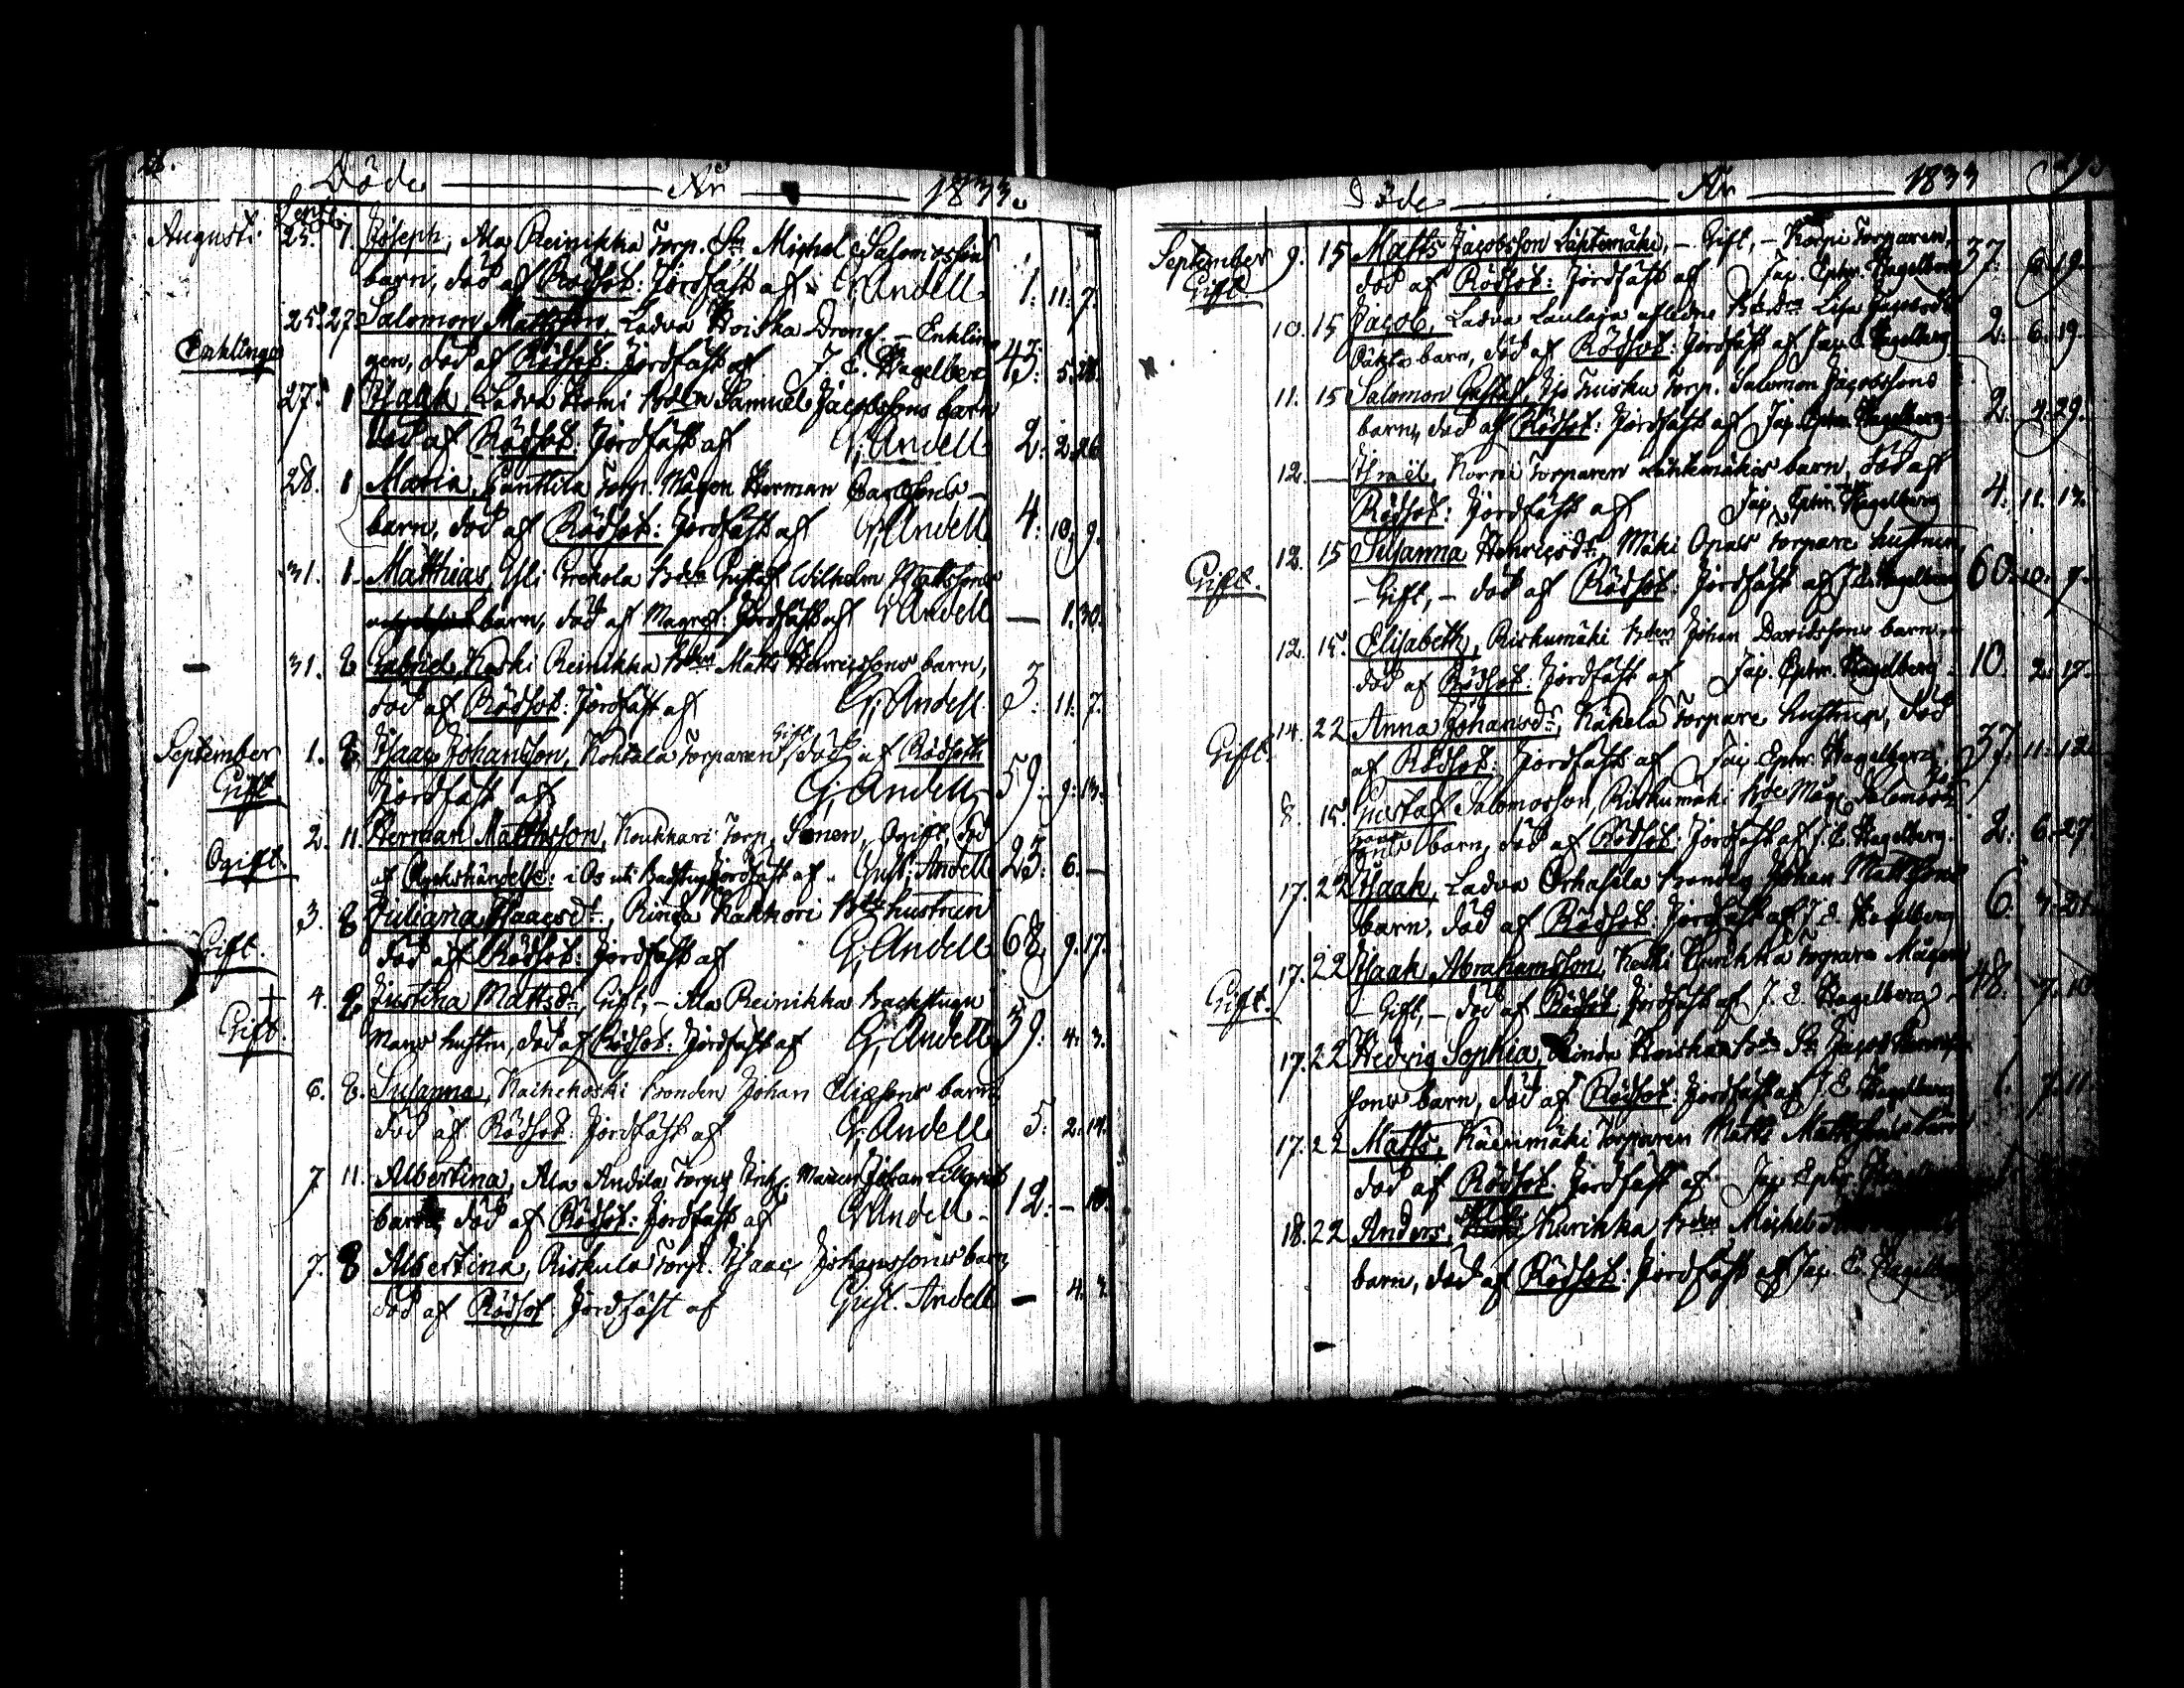 Döde — År — 1833.
Augusti. Sept.
25. 1 Joseph, Ala Reinikka Torp. Sn Michel Salomonssons
barn, död af Rödsot: Jordfäst af G. Andell 1: 11: 7.
25. 27. Salomon Mattsson, Ladva Koiska Dreng. – Enkling
Enklinge gen, död af Rödsot: Jordfäst af J. E. Hagelberg 43: 5: 28.
27. 1 Isaak Ladva Bdn Samuel Jacobssons barn
död af Rödsot: Jordfäst af G. Andell 2: 2: 26
28. 1 Maria, Panttila Torp. Mågen Herman Carlssons –
barn, död af Rödsot: Jordfäst af G. Andell 4: 10: 9.
31. 1. Matthias Yli Gustaf Wilhelm Mattssons
barn, död af Magref: Jordfäst af G. Andell — 1. 30.
31. 8 Gabriel, Koski Reinikka Bden Matts Henricssons barn,
död af Rödsot: Jordfäst af G. Andell. 3: 11: 7.
September 1. 8 Isaac Johansson, Kohtala Torparen Gift död af Rödsoth
Gift Jordfäst af G. Andell 59: 9: 13.
2. 11. Herman Mattsson, Koukkari Torp. Sonen, Ogift död
Ogift. af Olyckshändelse: i Os uti Badstug Jordfäst af Gust. Andell 23: 6. —
3. 8 Juliana Isaacsdr, Rinda Kakkori Bde hustrun
Gift. död af Rödsot: Jordfäst af G. Andell 68. 9. 17.
4. 8 Justina Mattsdr, Gift, – Ala Reinikka Backstugu
Gift. Mans hustru, död af Rödsot: Jordfäst af G. Andell 59: 4: 3.
6. 8. Susanna, Kaihekoski Bonden Johan Eliassons barn,
död af Rödsot: Jordfäst af G. Andell 5: 2: 14.
7 11. Albertina, Ala Andila Torps Johan
barn, död af Rödsot: Jordfäst af G. Andell – 12: – 18.
7. 8 Albertina, Riskula Torp. Isaac Johanssons barn
död af Rödsot Jordfäst af Gust. Andell — 4.
Döde — År — 1833
September 9. 15 Matts Jacobsson Lähtemäki, – Gift, – Korpi Torparen,
Gift. död af Rödsot: Jordfäst af Jap. Ephr. Hagelberg 37: 19.
10. 15 Jacob, Ladva Laulaja Lisa Jacobsdr
barn, död af Rödsot: Jordfäst af Jap. E. Hagelberg 2: 6: 19.
11. 15 Salomon Gustaf, Torp. Salomon Jacobssons
barn, död af Rödsot: Jordfäst af Jap. Ephr. Hagelberg 2: 2: 29.
12. — Israël, Korpi Torparen Lähtemäkis barn, död af
Rödsot: Jordfäst af Jap. Ephr. Hagelberg 4: 11: 17.
12. 15 Susanna Henricsdr, Mäki Opas Torpare hustrun,
Gift. – Gift, – död af Rödsot: Jordfäst af J. E. Hagelberg 60: 10: 7.
12. 15. Elisabeth, Riskumäki Bden Johan Davidssons barn –
död af Rödsot: Jordfäst af Jap. Ephr. Hagelberg – 10. 2: 17.
14. 22 Anna Johansdr, Kahela Torpare hustrun, död
Gift. af Rödsot: Jordfäst af Jap. Ephr. Hagelberg 37: 11: 12.
8. 15. Gustaf Salomosson, Riskumäki Bde Måg Salomon
barn, död af Rödsot: Jordfäst af J. E. Hagelberg. 2: 6: 27.
17. 22 Isaak, Ladva Orhasila Bondes Johan Mattssons
barn, död af Rödsot: Jordfäst af J. E. Hagelberg 6.
17. 22 Isaak Abrahamsson, Koski Kurikka Torpare Mågen
Gift. – Gift, – död af Rödsot: Jordfäst af J. E. Hagelberg – 48: 7: 10
17. 22 Hedvig Sophia, Rinda Koiska Bde Sn Jacob Henrics-
sons barn, död af Rödsot: Jordfäst af J. E. Hagelberg 1. 7. 11.
17. 22 Matts, Käenmäki Torparen Matts Mattssons barn
död af Rödsot: Jordfäst af Jap. Ephr.
18. 22 Anders, Kurikka Bden Michel
barn, död af Rödsot: Jordfäst af Jap. E. Hagelberg